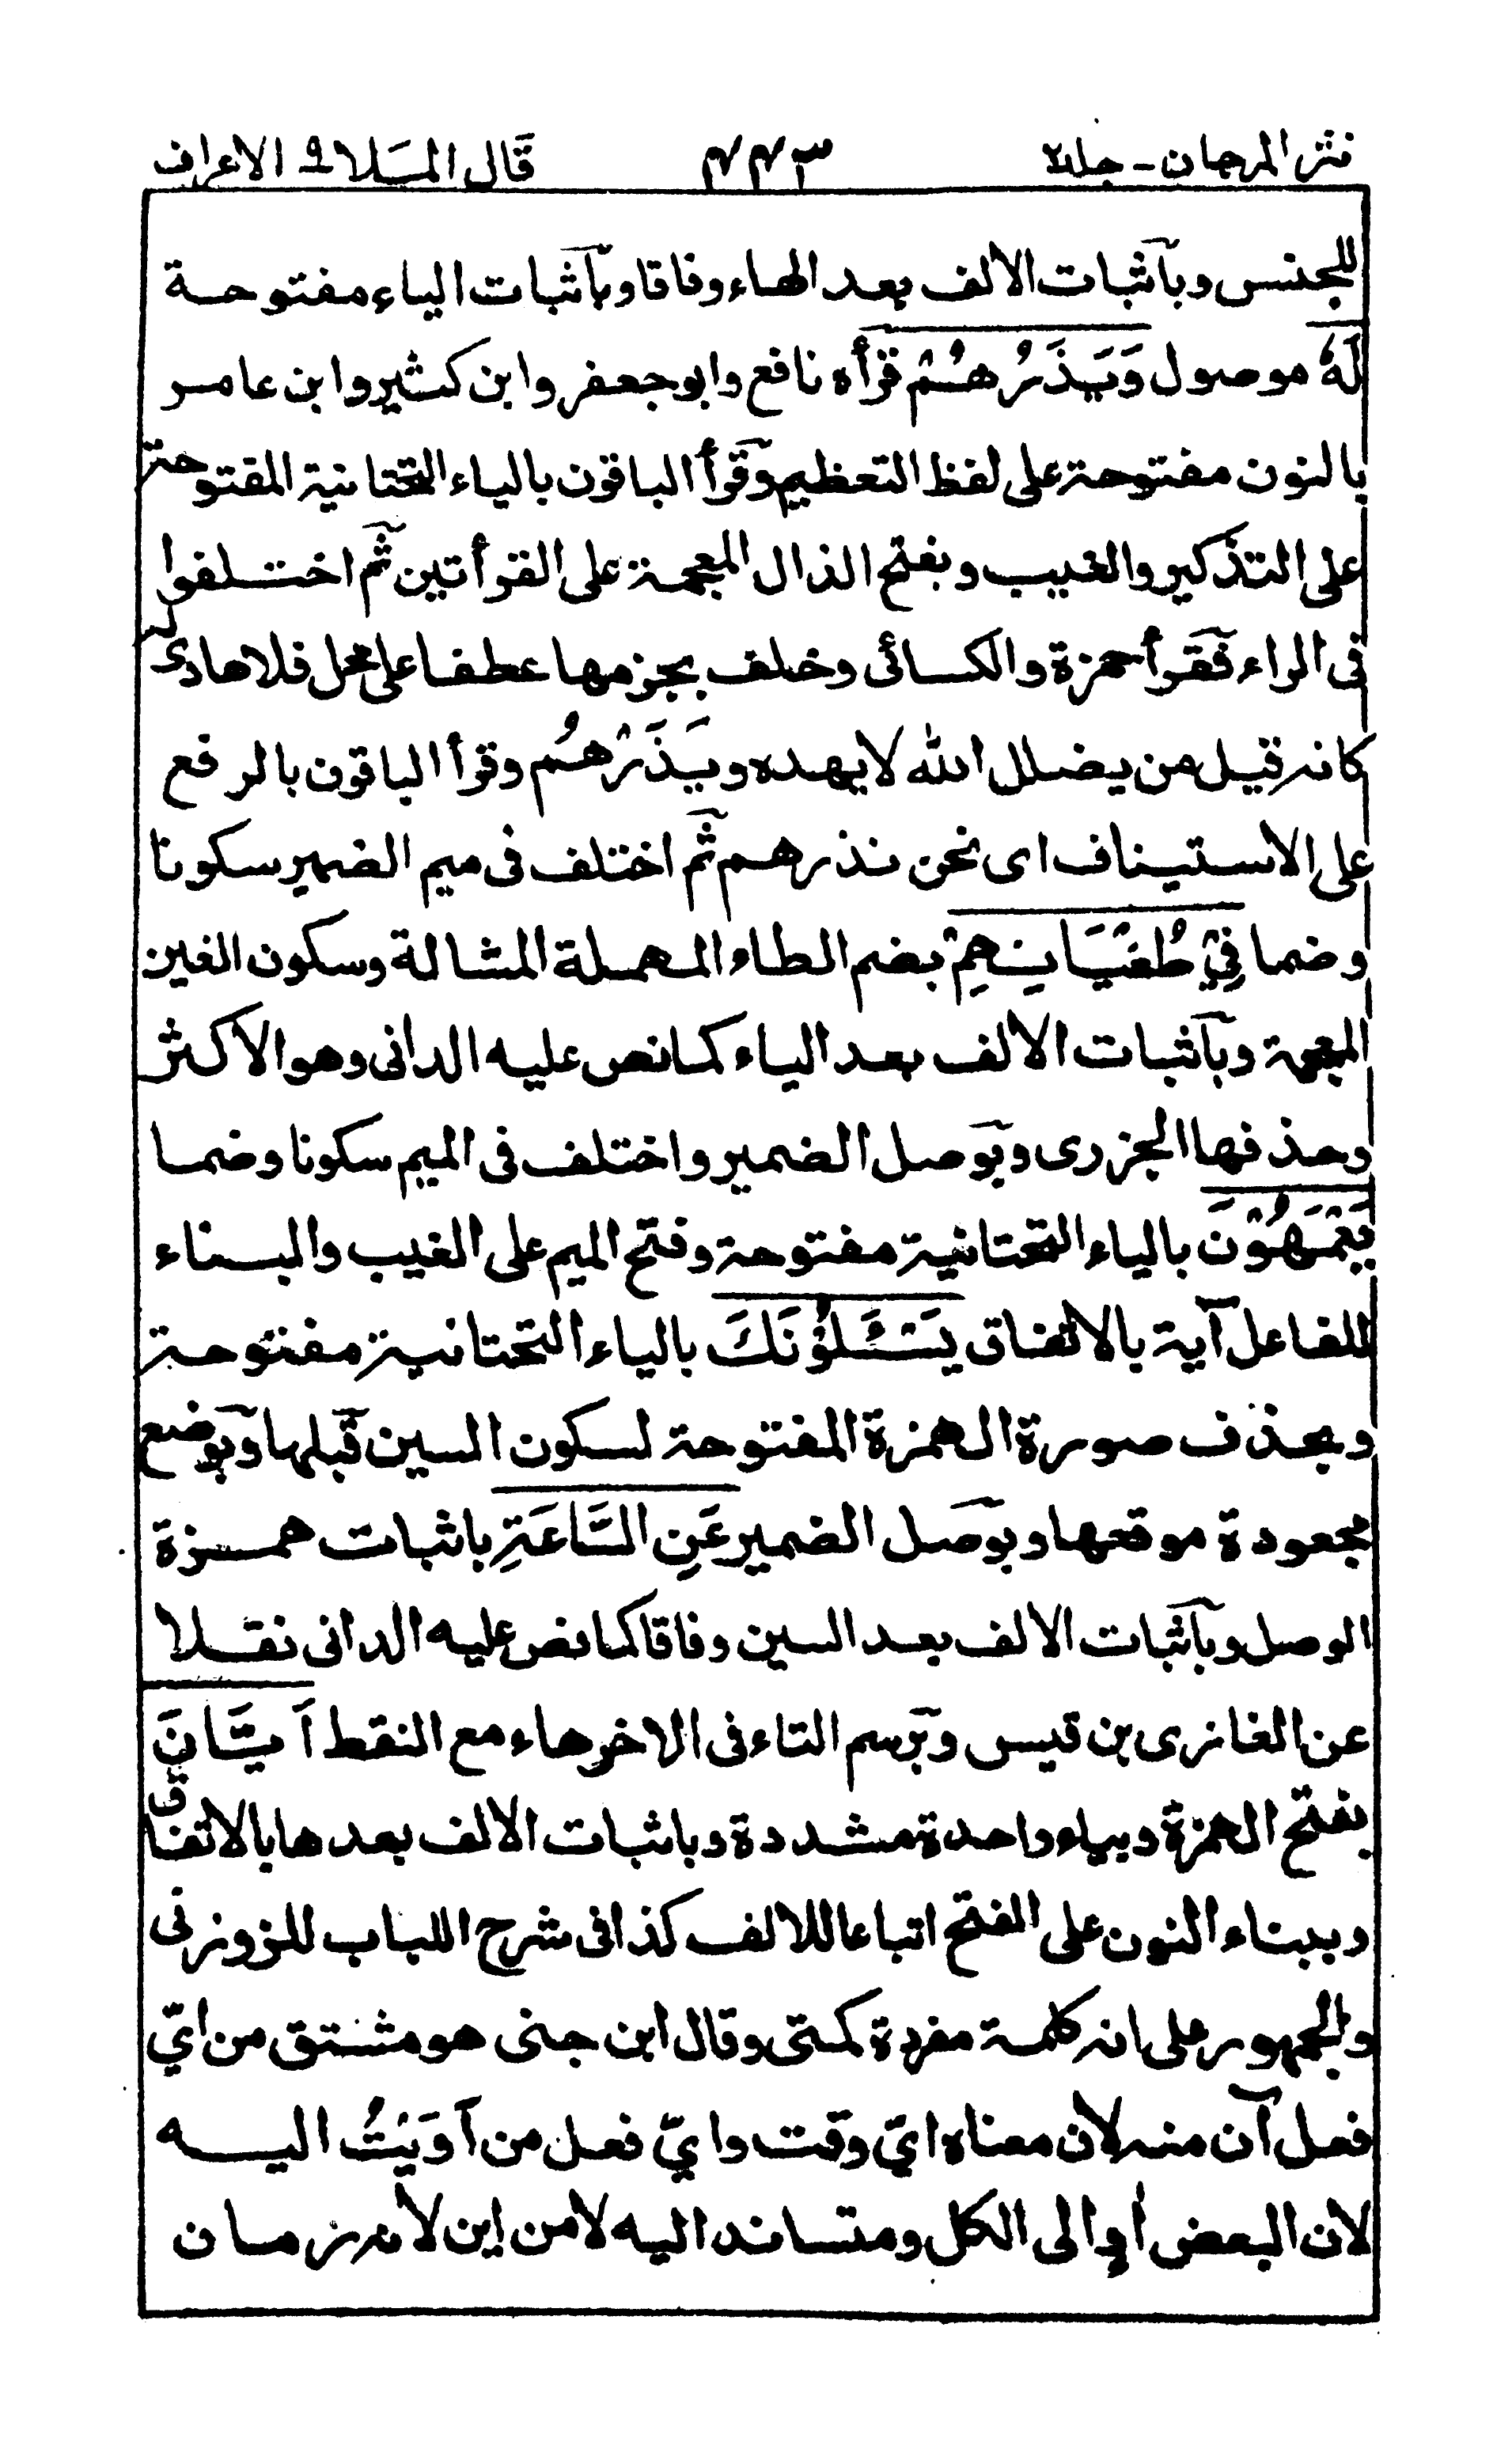 نثر المرجان - جلد۲ ۴۴۳ قَال المَلا ۹ الاعراف
للجنس وبآثبات الالف بعد الهاء وفاقا وبآثبات الياء مفتوحة
لَهٗ موصول وَيَذَرُهُمْ قرأه نافع وابوجعفر وابن كثير وابن عامر
بالنون مفتوحة على لفظ التعظيم وقرأ الباقون بالياء التحتانية المفتوحة
على التذكير والغيب وبفتح الذال المعجمة على القرأتين ثم اختلفوا
فى الراء فقرأ حمزة والكسائى وخلف بجزمها عطفا على محل فلا هادى له
كانه قيل من يضلل الله لا يهده ويَذَرْهُم وقرأ الباقون بالرفع
على الاستيناف اى نحن نذرهم ثم اختلف فى ميم الضمير سكونا
وضما فِيْ طُغْيَانِهِمْ بضم الطاء المهملة المشالة وسكون الغين
المعجمة وبآثبات الالف بعد الياء كما نص عليه الدانى وهو الاكثر
وحذفها الجزرى وبوصل الضمير واختلف فى الميم سكونا وضما
يَعْمَهُوْنَ بالياء التحتانية مفتوحة وفتح الميم على الغيب والبناء
للفاعل آية بالاتفاق يَسْئَلُوْنَكَ بالياء التحتانية مفتوحة
وبحذف صورة الهمزة المفتوحة لسكون السين قبلها وبوضع
مجعودة موقعها وبوصل الضمير عَنِ السَّاعَةِ باثبات همزة
الوصل وبآثبات الالف بعد السين وفاقا كما نص عليه الدانى نقلا
عن الغازى بن قيس وبرسم التاء فى الاخر هاء مع النقط اَيَّانَ
بفتح الهمزة وبياء واحدة مشددة وباثبات الالف بعدها بالاتفاق
وببناء النون على الفتح اتباعا للالف كذا فى شرح اللباب للزوزنى
والجمهور على انه كلمة مفردة كمتى وقال ابن جنى هو مشتق من ايّ
فعل آن منه لان معناه ايّ وقت وايّ فعل من اَوَيْتُ اليه
لان البعض أوٍ الى الكل ومتساند اليه لا من اين لانه زمان